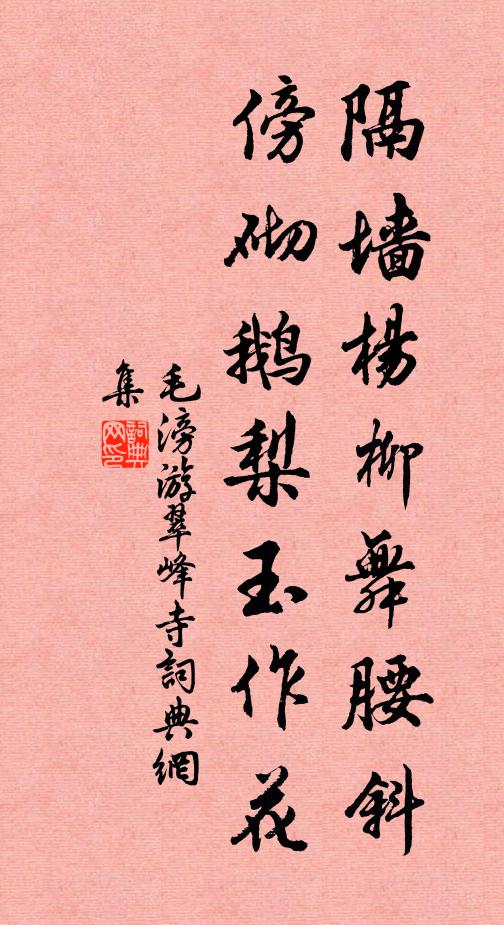 隔墙楊柳舞腰斜
傍砌鹅梨玉作花
毛滂游翠峰寺詞典網
集
詞典
网印